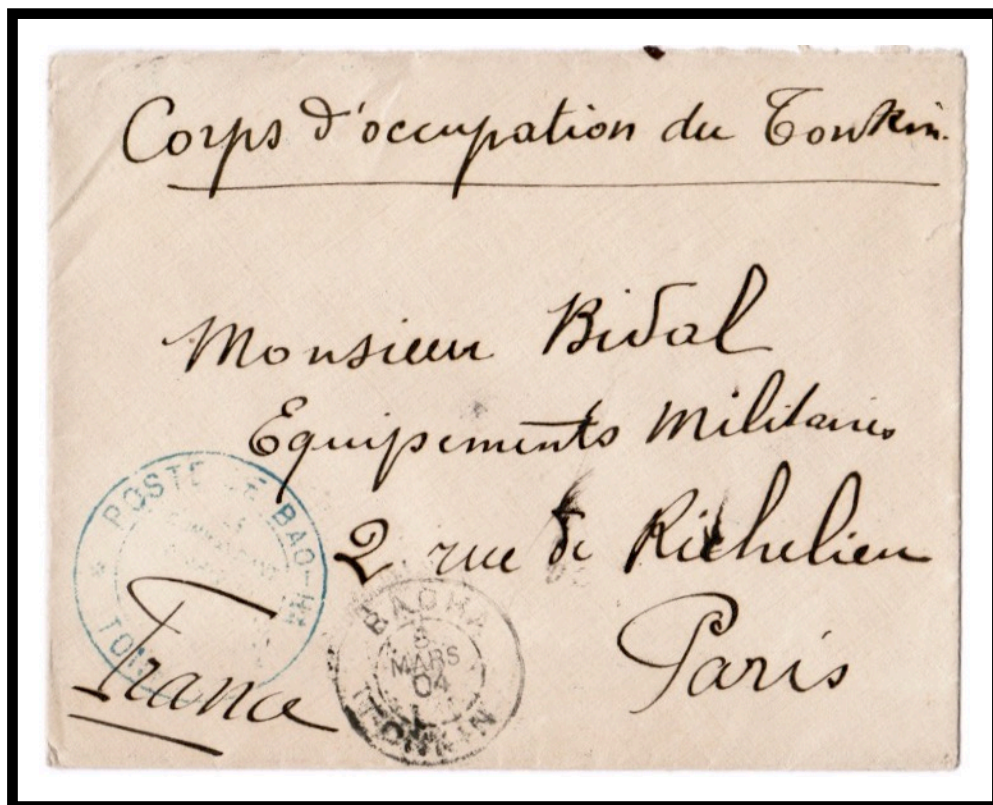 Corps d'occupation du Tonkin.
Monsieur Bidal
Equipements Militaires
2 rue de Richelieu
Paris
France
POSTE DE BAO-HA
BAOHA
8
MARS
04
THONKIN